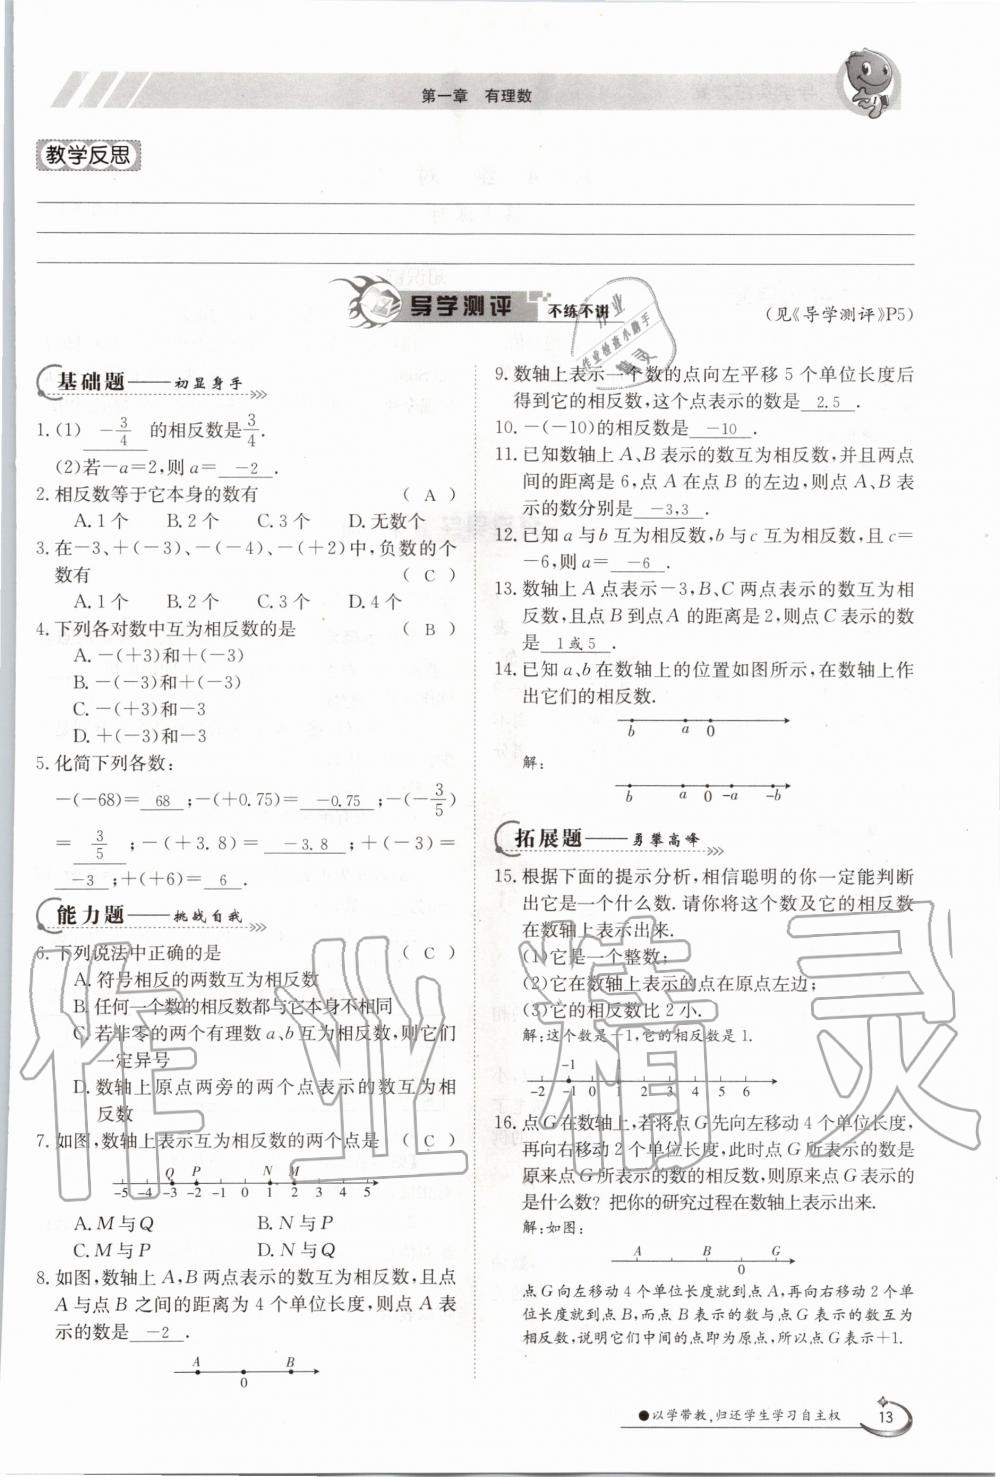 第一章 有理数
教学反思
导学测评 不练不讲
(见《导学测评》P5)
基础题——初显身手
1.(1) -3/4 的相反数是3/4.
(2)若-a=2,则a= -2 .
2.相反数等于它本身的数有 ( A )
A.1个 B.2个 C.3个 D.无数个
3.在-3、+(-3)、-(-4)、-(+2)中,负数的个
数有 ( C )
A.1个 B.2个 C.3个 D.4个
4.下列各对数中互为相反数的是 ( B )
A.-(+3)和+(-3)
B.-(-3)和+(-3)
C.-(+3)和-3
D.+(-3)和-3
5.化简下列各数:
-(-68)= 68 ;-(+0.75)= -0.75 ;-(-3/5)
= 3/5 ;-(+3.8)= -3.8 ;+(-3)=
-3 ;+(+6)= 6 .
能力题——挑战自我
6.下列说法中正确的是 ( C )
A.符号相反的两数互为相反数
B.任何一个数的相反数都与它本身不相同
C.若非零的两个有理数a、b互为相反数,则它们
一定异号
D.数轴上原点两旁的两个点表示的数互为相
反数
7.如图,数轴上表示互为相反数的两个点是 ( C )
Q P N M
-5 -4 -3 -2 -1 0 1 2 3 4 5
A.M与Q B.N与P
C.M与P D.N与Q
8.如图,数轴上A,B两点表示的数互为相反数,且点
A与点B之间的距离为4个单位长度,则点A表
示的数是 -2 .
A B
0
9.数轴上表示一个数的点向左平移5个单位长度后
得到它的相反数,这个点表示的数是 2.5 .
10.-(-10)的相反数是 -10 .
11.已知数轴上A、B表示的数互为相反数,并且两点
间的距离是6,点A在点B的左边,则点A、B表
示的数分别是 -3,3 .
12.已知a与b互为相反数,b与c互为相反数,且c=
-6,则a= -6 .
13.数轴上A点表示-3,B、C两点表示的数互为相
反数,且点B到点A的距离是2,则点C表示的数
是 1或5 .
14.已知a、b在数轴上的位置如图所示,在数轴上作
出它们的相反数.
b a 0
解:
b a 0 -a -b
拓展题——勇攀高峰
15.根据下面的提示分析,相信聪明的你一定能判断
出它是一个什么数.请你将这个数及它的相反数
在数轴上表示出来.
(1)它是一个整数;
(2)它在数轴上表示的点在原点左边;
(3)它的相反数比2小.
解:这个数是-1,它的相反数是1.
-1 1
-2 -1 0 1 2 3 4 5 6
16.点G在数轴上,若将点G先向左移动4个单位长度,
再向右移动2个单位长度,此时点G所表示的数是
原来点G所表示的数的相反数,则原来点G表示的
是什么数?把你的研究过程在数轴上表示出来.
解:如图:
A B G
0
点G向左移动4个单位长度就到点A,再向右移动2个单
位长度就到点B,而点B表示的数与点G表示的数互为
相反数,说明它们中间的点即为原点,所以点G表示+1.
●以学带教,归还学生学习自主权
13
作业
作业检查小助手
精灵
作业精灵